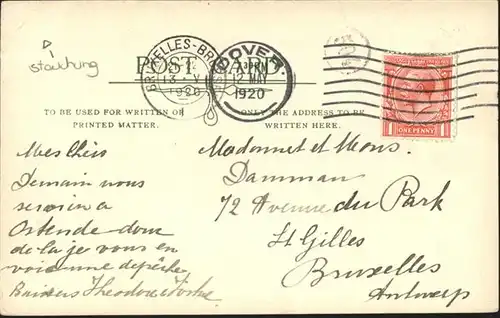 POST CARD.
BRUXELLES-BR
13 V
1920
DOVER.
12 MY
1920
ONE PENNY
TO BE USED FOR WRITTEN OR
PRINTED MATTER.
ONLY THE ADDRESS TO BE
WRITTEN HERE.
Mes
Demain nous
serons a
Ostende - donc
de la je vous en
voie une depêche
Baisers Theodore
Madame et Mons.
Damman
72 Avenue du Park
St Gilles
Bruxelles
Antwerp